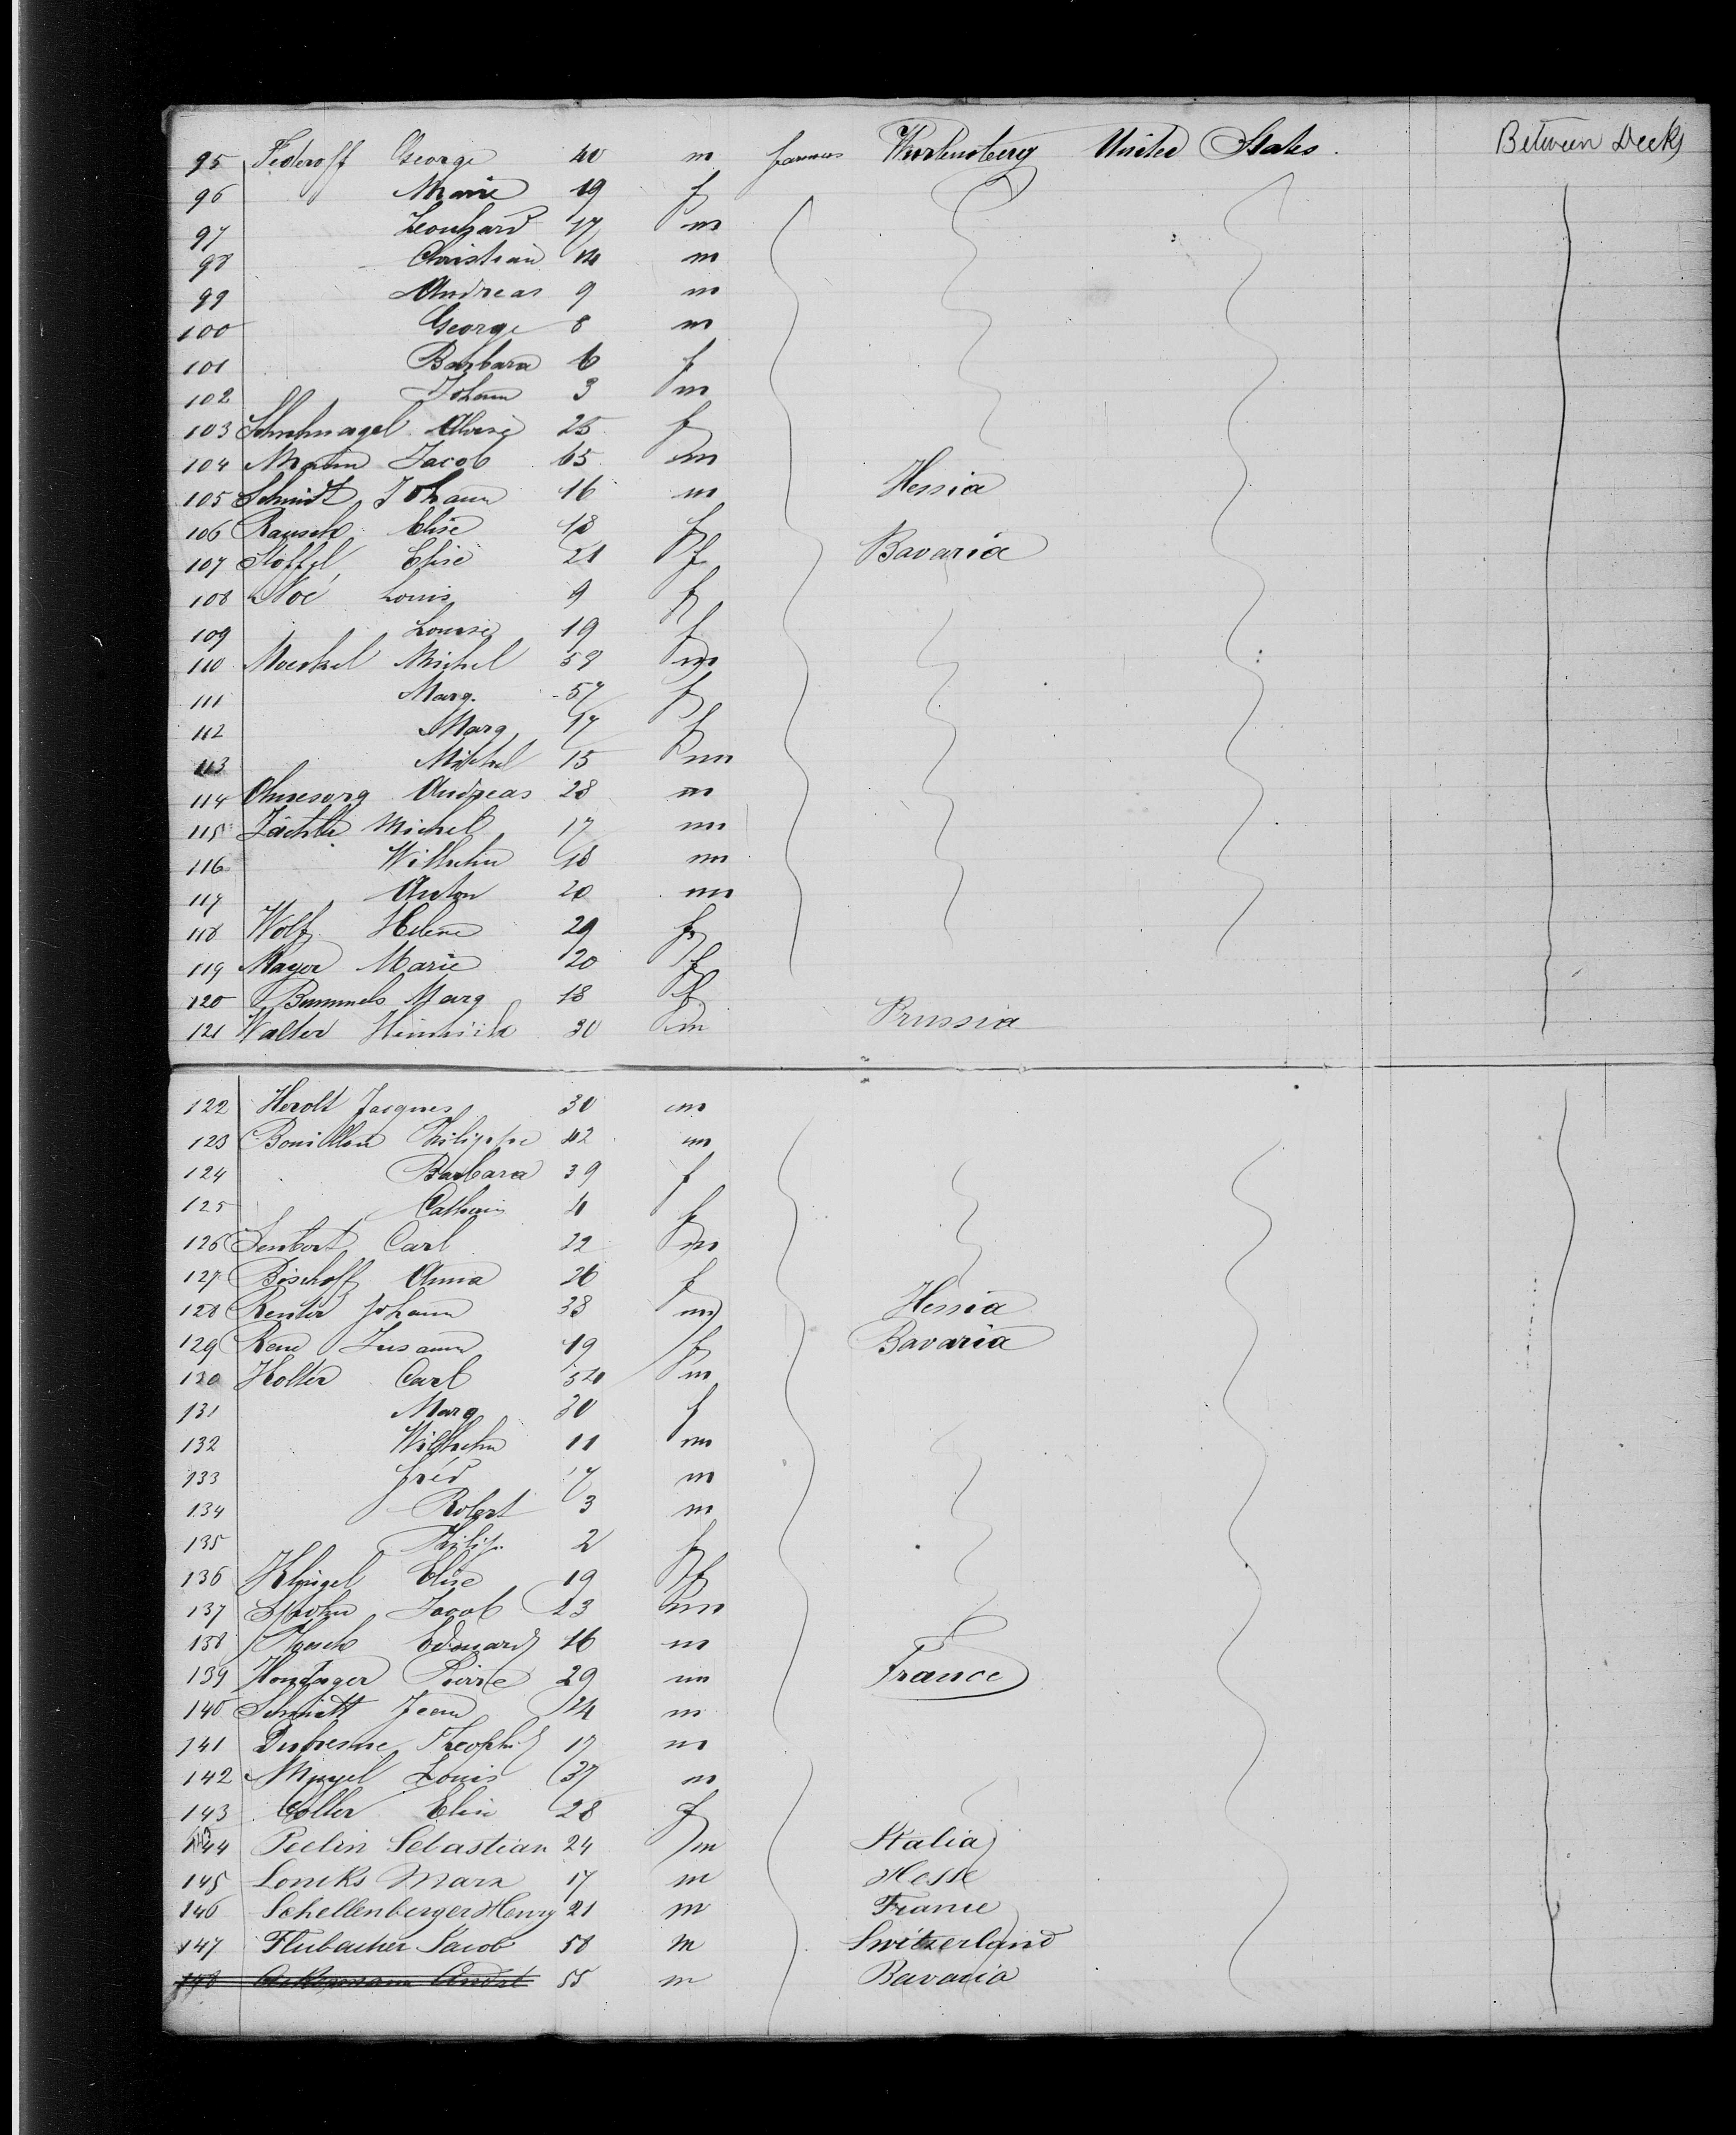 95 Federoff George 40 m farmers Wurtemberg United States. Between Decks
96 Marie 19 f
97 Leonhard 17 m
98 Christian 14 m
99 Andreas 9 m
100 George 8 m
101 Barbara 6 f
102 Johann 3 m
103 25 f
104 Jacob 65 m
105 Schmidt Johann 16 m Hessia
106 Rausch Elise 18 f
107 Stoffel Elise 21 f Bavaria
108 Noé Louis 9 f
109 Louise 19 f
110 Moerkel Michel 59 m
111 Marg. 57 f
112 Marg 17 f
113 Michel 15 m
114 Ohnesorg Andreas 28 m
115 Michel 17 m
116 Wilhelm 18 m
117 Anton 20 m
118 Wolf Helene 29 f
119 Mayer Marie 20 f
120 Bummels Marg 18 f
121 Walter Heinrich 30 m Prussia
122 Herolt Jacques 30 m
123 Bouillon Philippe 42 m
124 Barbara 39 f
125 Catherin 4 f
126 Carl 22 m
127 Bischoff Anna 26 f
128 Renter Johann 38 m Hessia
129 Susann 19 f Bavaria
130 Holter Carl m
131 Marg 30 f
132 Wilhelm 11 m
133 fréd 7 m
134 Robert 3 m
135 Philip. 2 f
136 Klingel Elise 19 f
137 Spohn Jacob 23 m
138 Edouard 16 m
139 Pierre 29 m France
140 Schmidt Jean 24 m
141 Dufresne Theophil 17 m
142 Louis 37 m
143 Coller Elise 28 f
144 Peclin Sebastian 24 m Italia
145 Loncks Marx 17 m Hesse
146 Schellenberger Henry 21 m France
147 Flubacher Jacob 58 m Switzerland
148 Ackermann André 55 m Bavaria